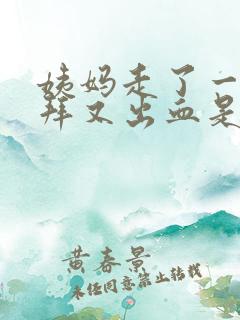 姨妈走了一
拜又出血是
黄春景
未经同意禁止转载